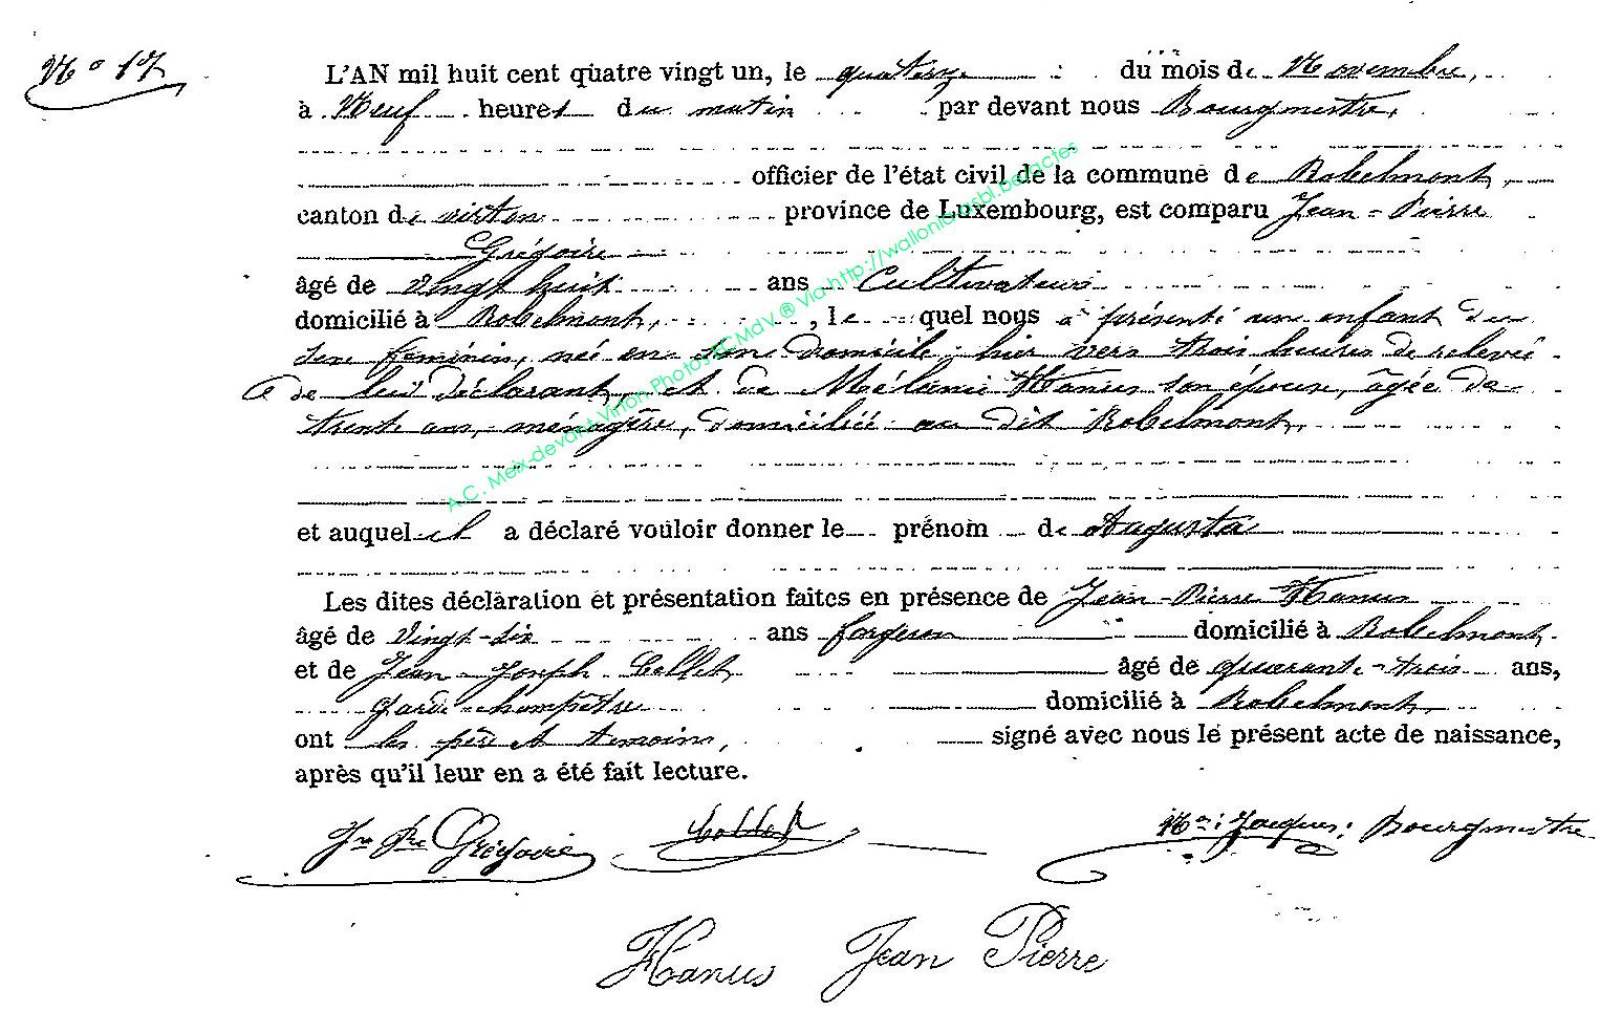 N° 17
L'AN mil huit cent quatre vingt un, le quatorze du mois de Novembre,
à Neuf heures du matin par devant nous Bourgmestre,
officier de l'état civil de la commune de Robelmont,
canton de virton province de Luxembourg, est comparu Jean-Pierre
Grégoire
âgé de vingt huit ans Cultivateur
domicilié à Robelmont, , le quel nous a présenté un enfant du
sexe feminin, né en son domicile hier vers trois heures de relevée
de lui déclarant, et de Mélanie Hanus son épouse, âgée de
trente ans, ménagère, domiciliée au dit Robelmont,
et auquel il a déclaré vouloir donner le prénom de Augusta
Les dites déclaration et présentation faites en présence de Jean-Pierre Hanus
âgé de vingt-six ans forgeron domicilié à Robelmont
et de Jean-Joseph Collet, âgé de quarante-trois ans,
garde-champêtre domicilié à Robelmont,
ont les père et temoins, signé avec nous le présent acte de naissance,
après qu'il leur en a été fait lecture.
Jn Pre Grégoire Collet Jacques: Bourgmestre
Hanus Jean Pierre
A.C. Meix-devant-Virton Photos CMdV ® Via http://wallonia-asbl.be/actes